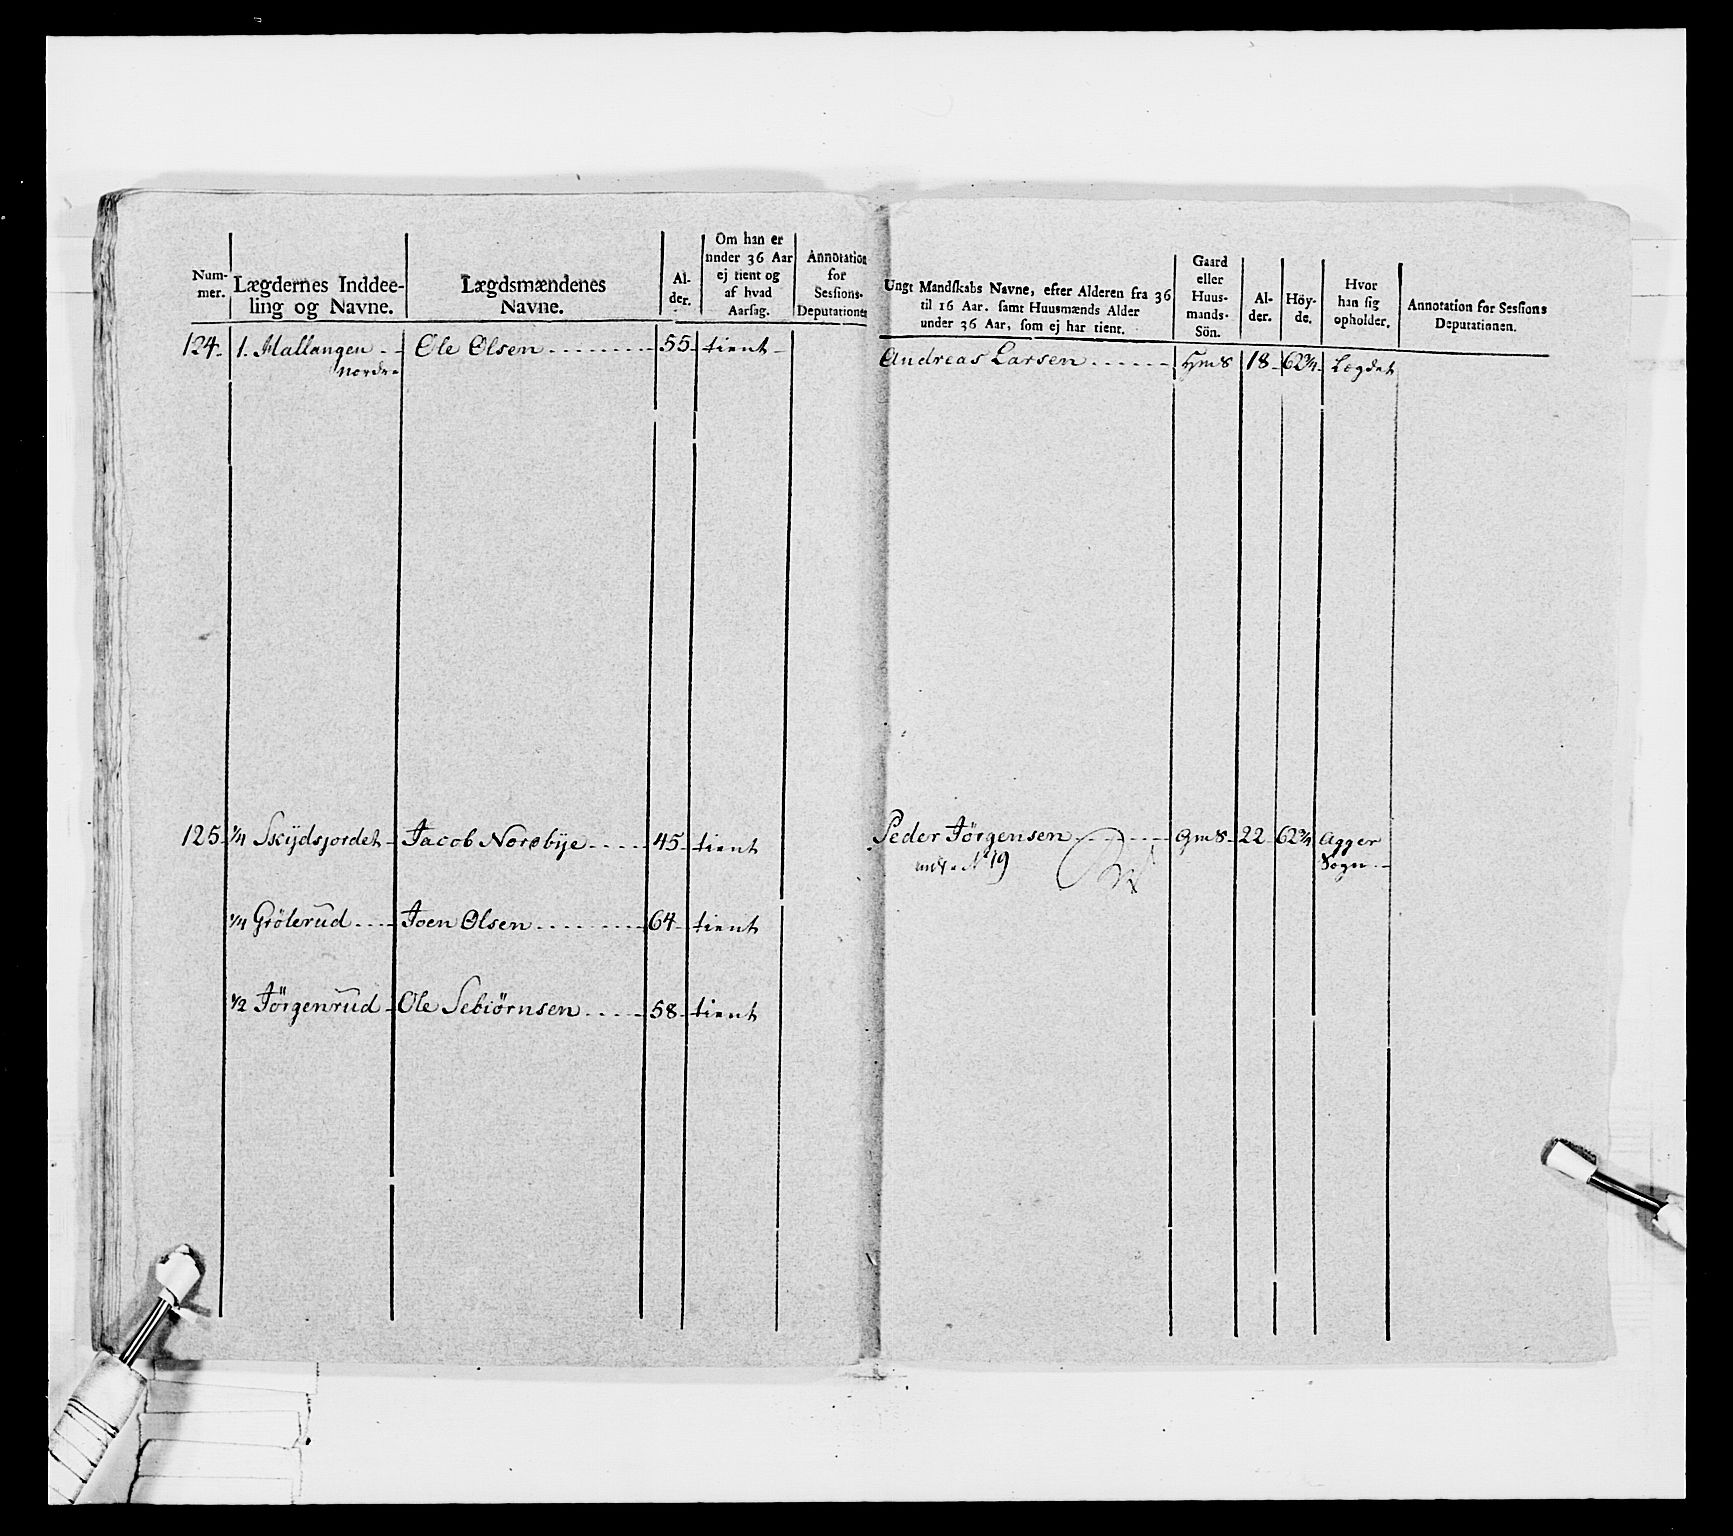 Num-
mer.
Lægdernes Inddee-
ling og Navne.
Lægdsmændenes
Navne.
Al-
der.
Om han er
under 36 Aar
ej tient og
af hvad
Aarsag.
Annotation
for
Sessions-
Deputationen
124. 1. Mallangen Ole Olsen 55 tient
Nordre
125 1/4 Skijdsjordet Jacob Norebye 45 tient
1/4 Grölerud Joen Olsen 64 tient
1/2 Jörgenrud Ole Sebiørnsen 58 tient
Ungt Mandskabs Navne, efter Alderen fra 36
til 16 Aar. samt Huusmænds Alder
under 36 Aar, som ej har tient.
Gaard
eller
Huus-
mands-
Sön.
Al-
der.
Höy-
de.
Hvor
han sig
opholder.
Annotation for Sessions
Deputationen.
Andreas Larsen Hms 18 62 3/4 Lægdet
Peder Jörgensen Gms 22 62 3/4 Agger
No 19 Sogn